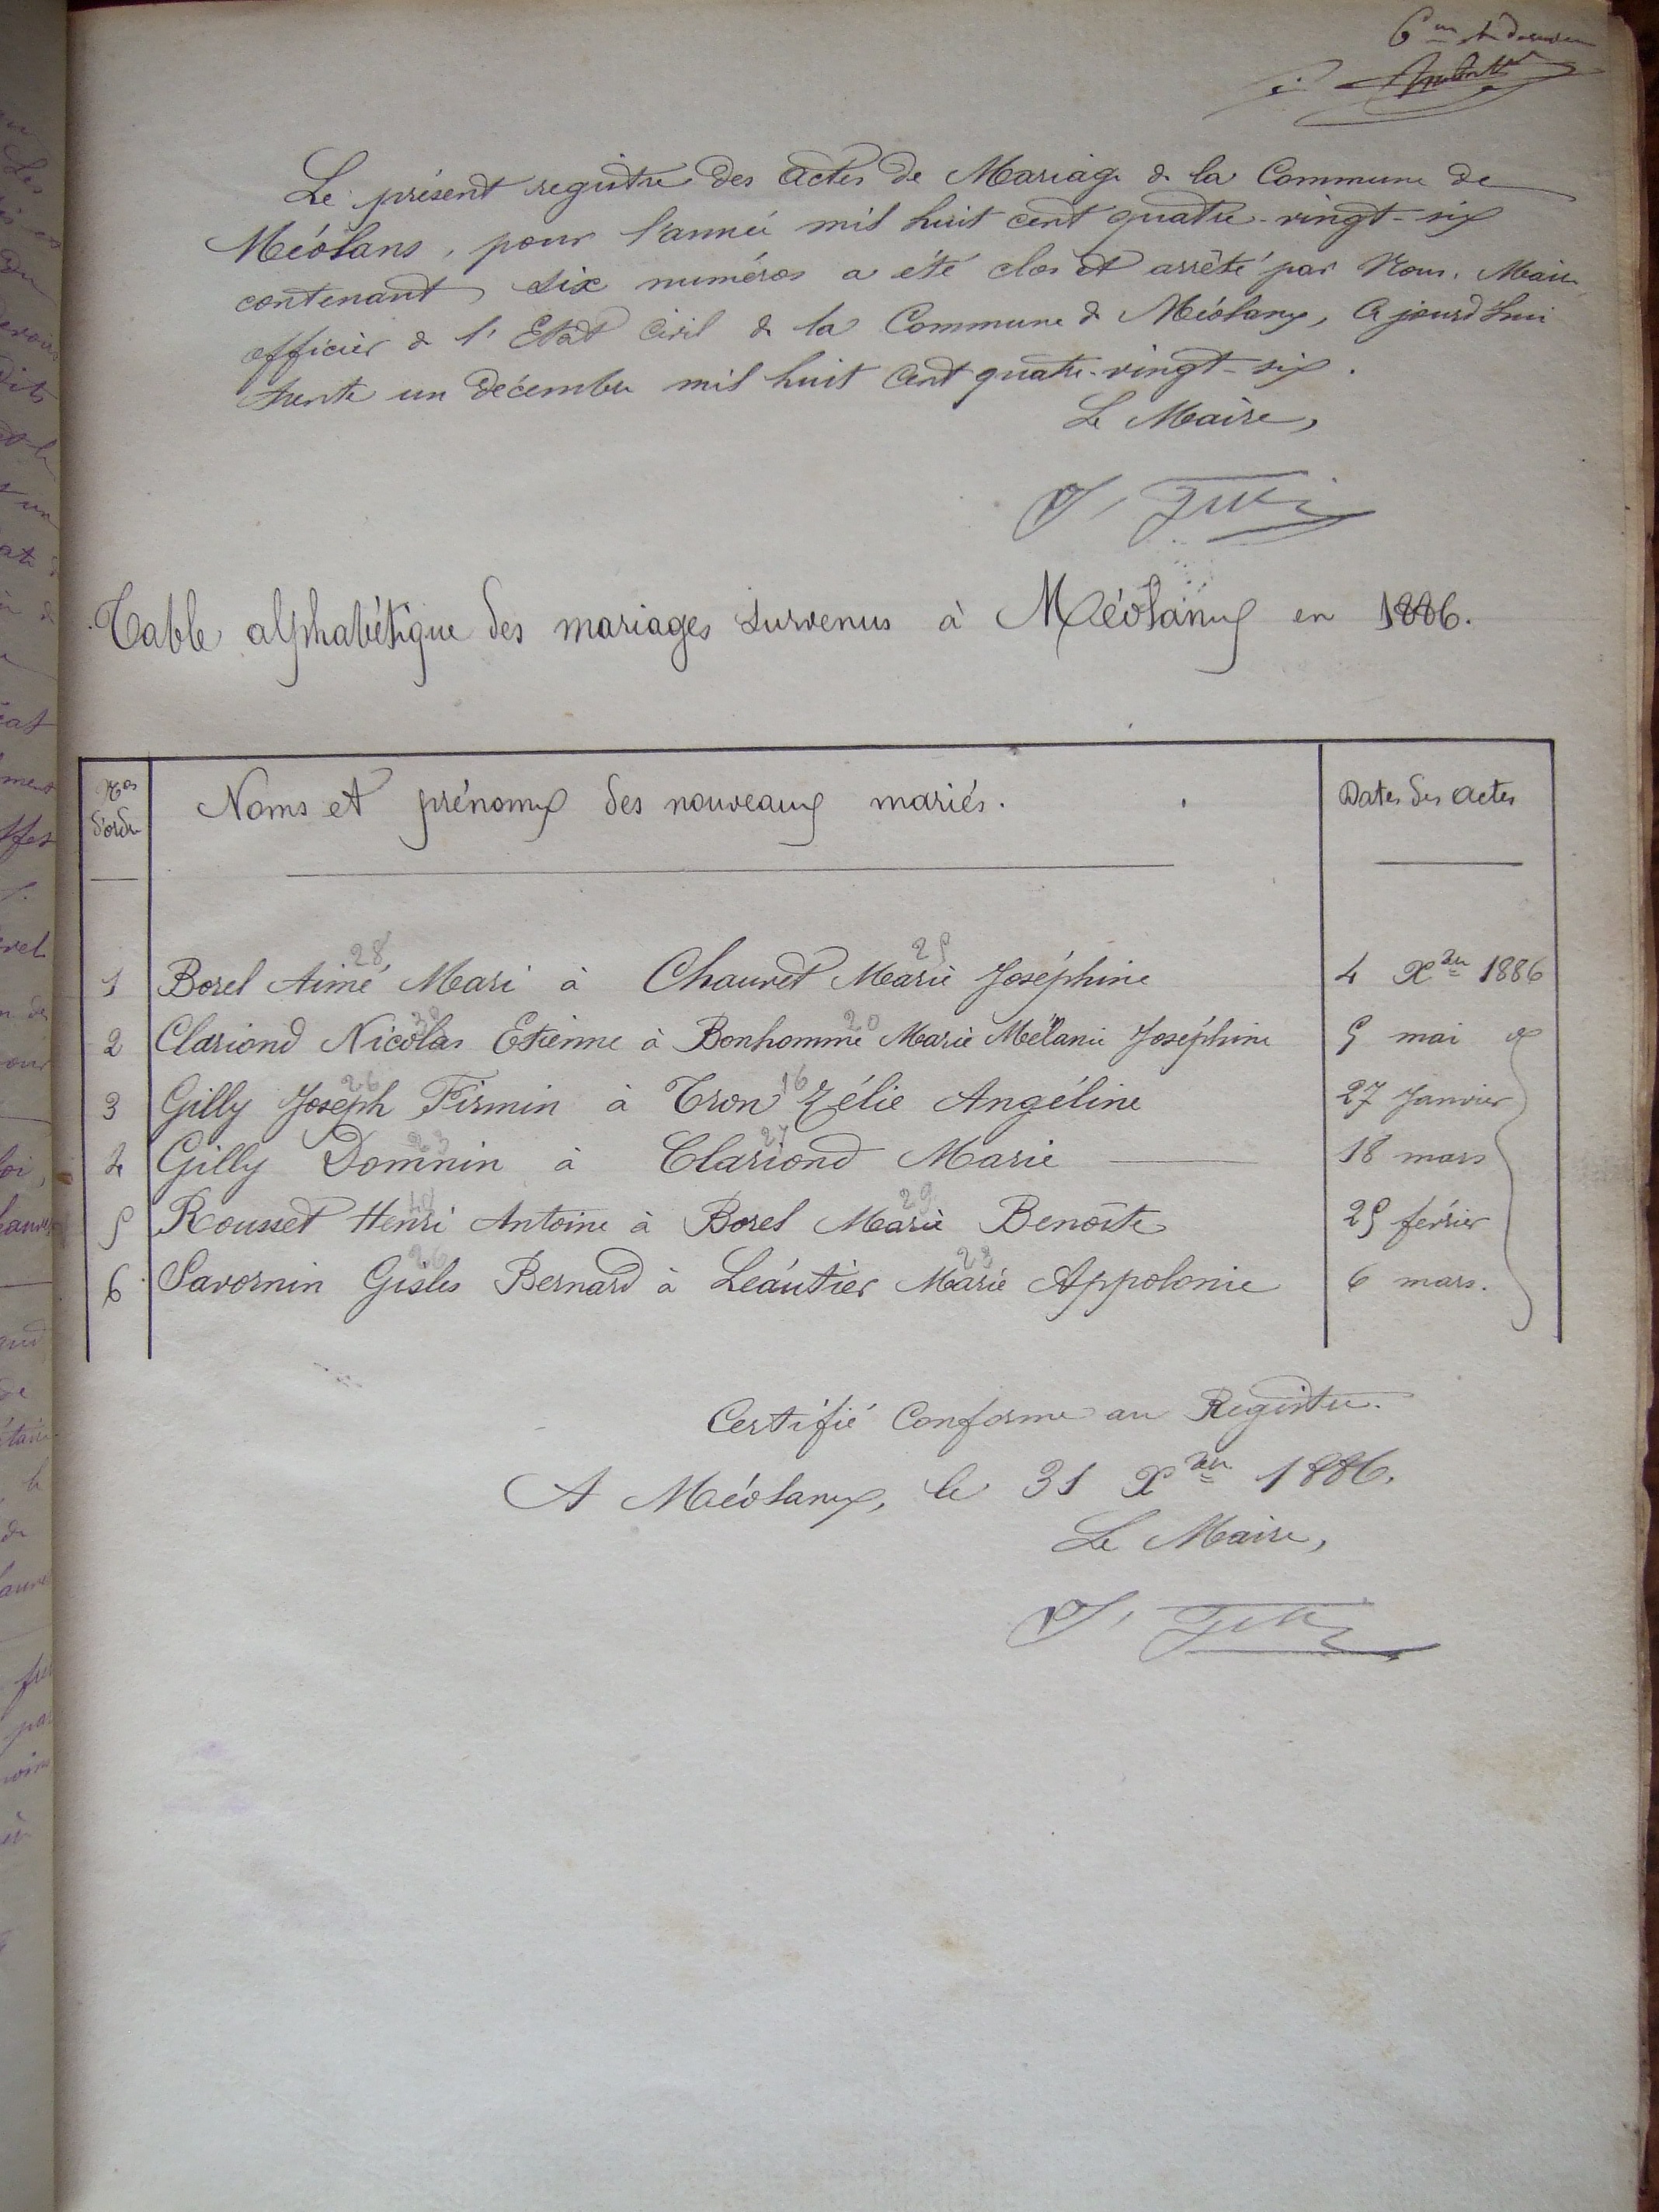 6me et dernier
Le présent registre des actes de Mariage de la Commune de
Méolans, pour l'année mil huit cent quatre-vingt-six
contenant six numéros a été clos et arrêté par Nous, Maire
officier de l'Etat Civil de la Commune de Méolans, Ce jourd'hui
trente un décembre mil huit cent quatre-vingt-six.
Le Maire,
Table alphabétique des mariages survenus à Méolans en 1886.
Nos d'ordre Noms et prénoms des nouveaux mariés. Dates des actes
28 25
1 Borel Aimé Mari à Chauvet Marie Joséphine 4 Xbre 1886
20
2 Clariond Nicolas Etienne à Bonhomme Marie Mélanie Joséphine 5 mai
26 16
3 Gilly Joseph Firmin à Tron Zélie Angéline 27 Janvier
23 27
4 Gilly Domnin à Clariond Marie 18 mars
29
5 Rousset Henri Antoine à Borel Marie Benoîte 25 février
26 23
6 Savornin Gisles Bernard à Léautier Marie Appolonie 6 mars.
Certifié Conforme au Registre.
A Méolans, le 31 Xbre 1886.
Le Maire,